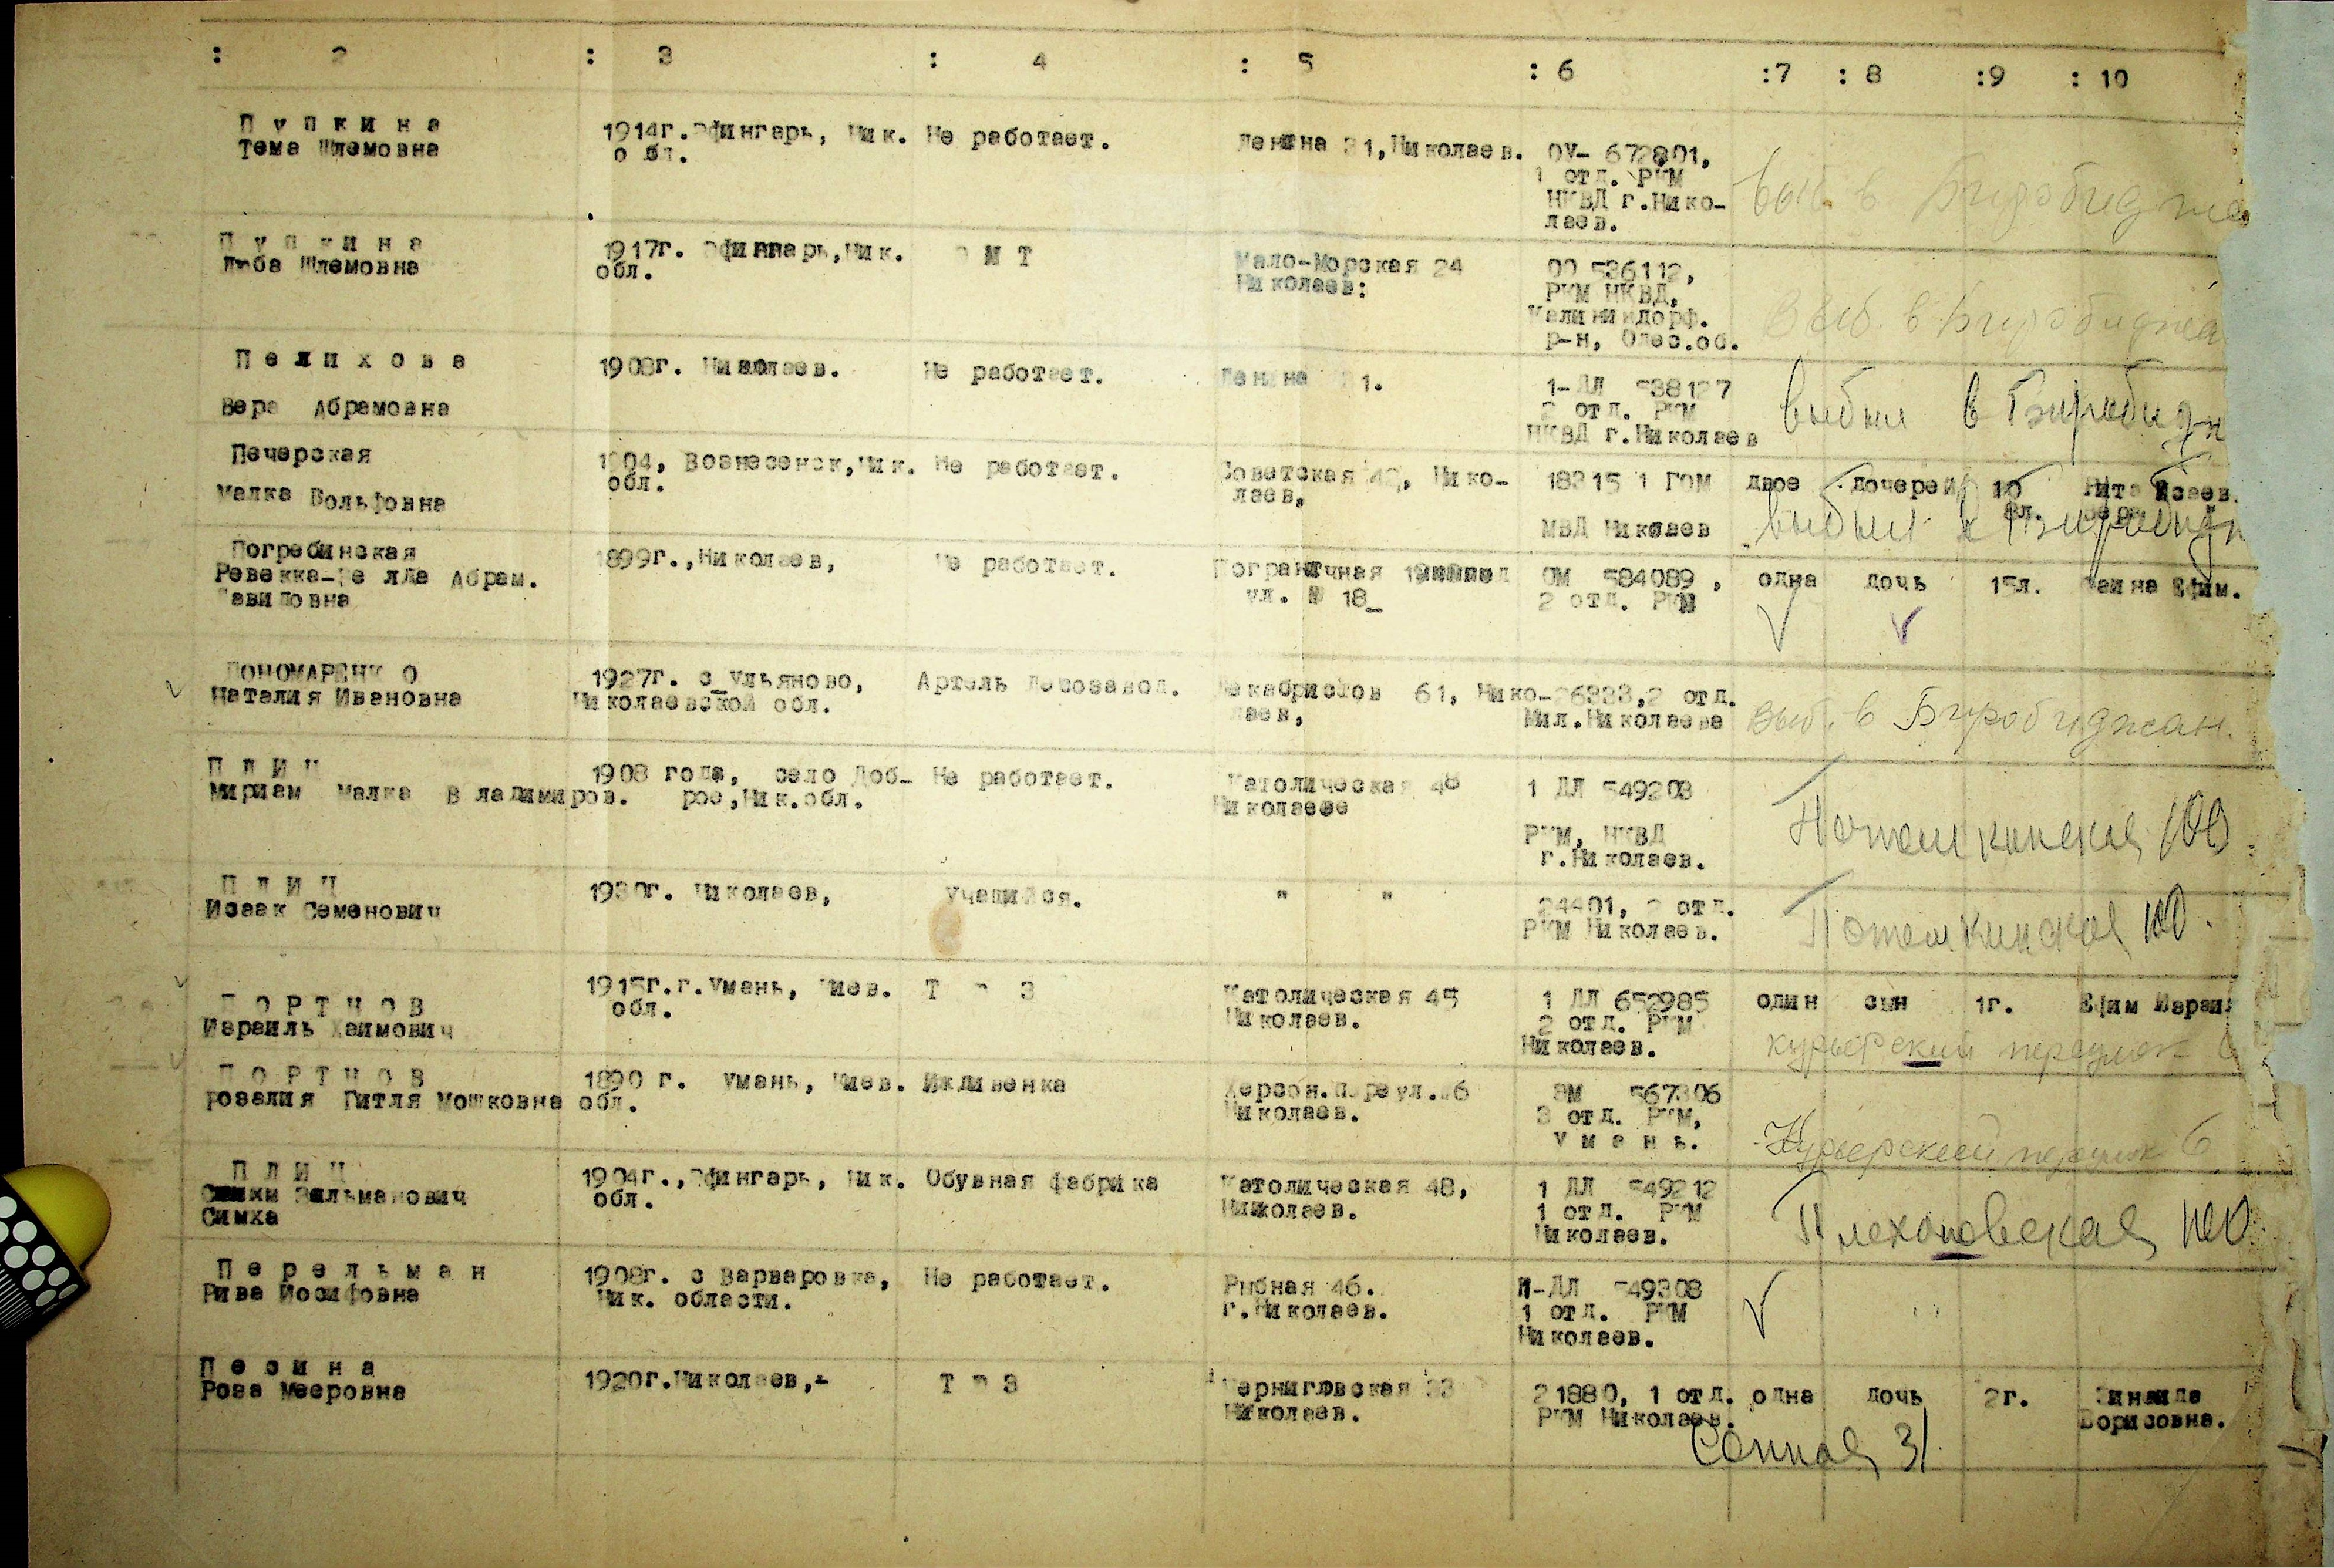 : 2 : 3 : 4 : 5 : 6 :7 : 8 :9 : 10
П у п к и н а
Тема Шлемовна
1914г. Эфингарь, Ник.
обл.
Не работает.
Ленина 31,Николаев.
ОУ- 672801,
1 отд. РКМ
НКВД г.Нико-
лаев.
выб. в Биробиджа
П у п к и н а
Люба Шлемовна
1917г. Ник.
обл.
М Т
Мало-Морская 24
Николаев:
536112,
РКМ НКВД,
Калининдорф.
р-н, Одес.об.
Выб. в Биробиджа
П е л и х о в а
Вера Абрамовна
1908г. Николаев.
Не работает.
Ленина 31.
1-ДЛ 538127
2 отд. РКМ
НКВД г.Николаев
выбыл в Биробидж
Печерская
Малка Вольфовна
1904, Вознесенск,Ник.
обл.
Не работает.
Советская 42, Нико-
лаев,
18315 1 ГОМ
МВД Николаев
двое дочерей 10 Рита Исаев.
8л.
выбыл в Биробидж
Погребинская
Ревекка- Абрам.
Давидовна
1899г.,Николаев,
Не работает.
Пограничная
ул. № 18_
ОМ 584089 ,
2 отд. РКМ
одна дочь 15л. Фаина Ефим.
ПОНОМАРЕНК О
Наталия Ивановна
1927г. с_Ульяново,
Николаевской обл.
Артель Лесозавод.
Декабристов 61, Нико-
лаев,
26333,2 отд.
Мил.Николаева
выб. в Биробиджан.
П Л И Ч
Мириам Малка Владимиров.
1908 года, село Доб-
рое,Ник.обл.
Не работает.
Католическая 48
Николаеве
1 ДЛ 549203
РКМ, НКВД
г.Николаев.
Потемкинская 100
П Л И Ч
Исаак Семенович
1930г. Николаев,
Учащийся.
" "
24401, 2 отд.
РКМ Николаев.
Потемкинская 100.
П О Р Т Н О В
Израиль Хаимович
1915г.г.Умань, Киев.
обл.
Т Э З
Католическая 45
Николаев.
1 ДЛ 652985
2 отд. РКМ
Николаев.
один сын 1г. Ефим Израил
курьерский переулок 6
П О Р Т Н О В
Розалия Гитля Мошковна
1890 г. Умань, Киев.
обл.
Иждивенка
Херсон.переул. 6
Николаев.
ЭМ 567306
3 отд. РКМ,
У м а н ь.
Курьерский переулок 6
П Л И Ч
Зельманович
Симха
1904г.,Эфингарь, Ник.
обл.
Обувная фабрика
Католическая 48,
Николаев.
1 ДЛ 549212
1 отд. РКМ
Николаев.
Плехановская 100
П е р е л ь м а н
Рива Иосифовна
1908г. с Варваровка,
Ник. области.
Не работает.
Рыбная 46.
г.Николаев.
1-ДЛ 549308
1 отд. РКМ
Николаев.
П е с и н а
Роза Мееровна
1920г.Николаев,-
Т Э З
Черниговская 33
Николаев.
21880, 1 отд.
РКМ Николаев.
одна дочь 2г. Зинаида
Борисовна.
Сенная 31